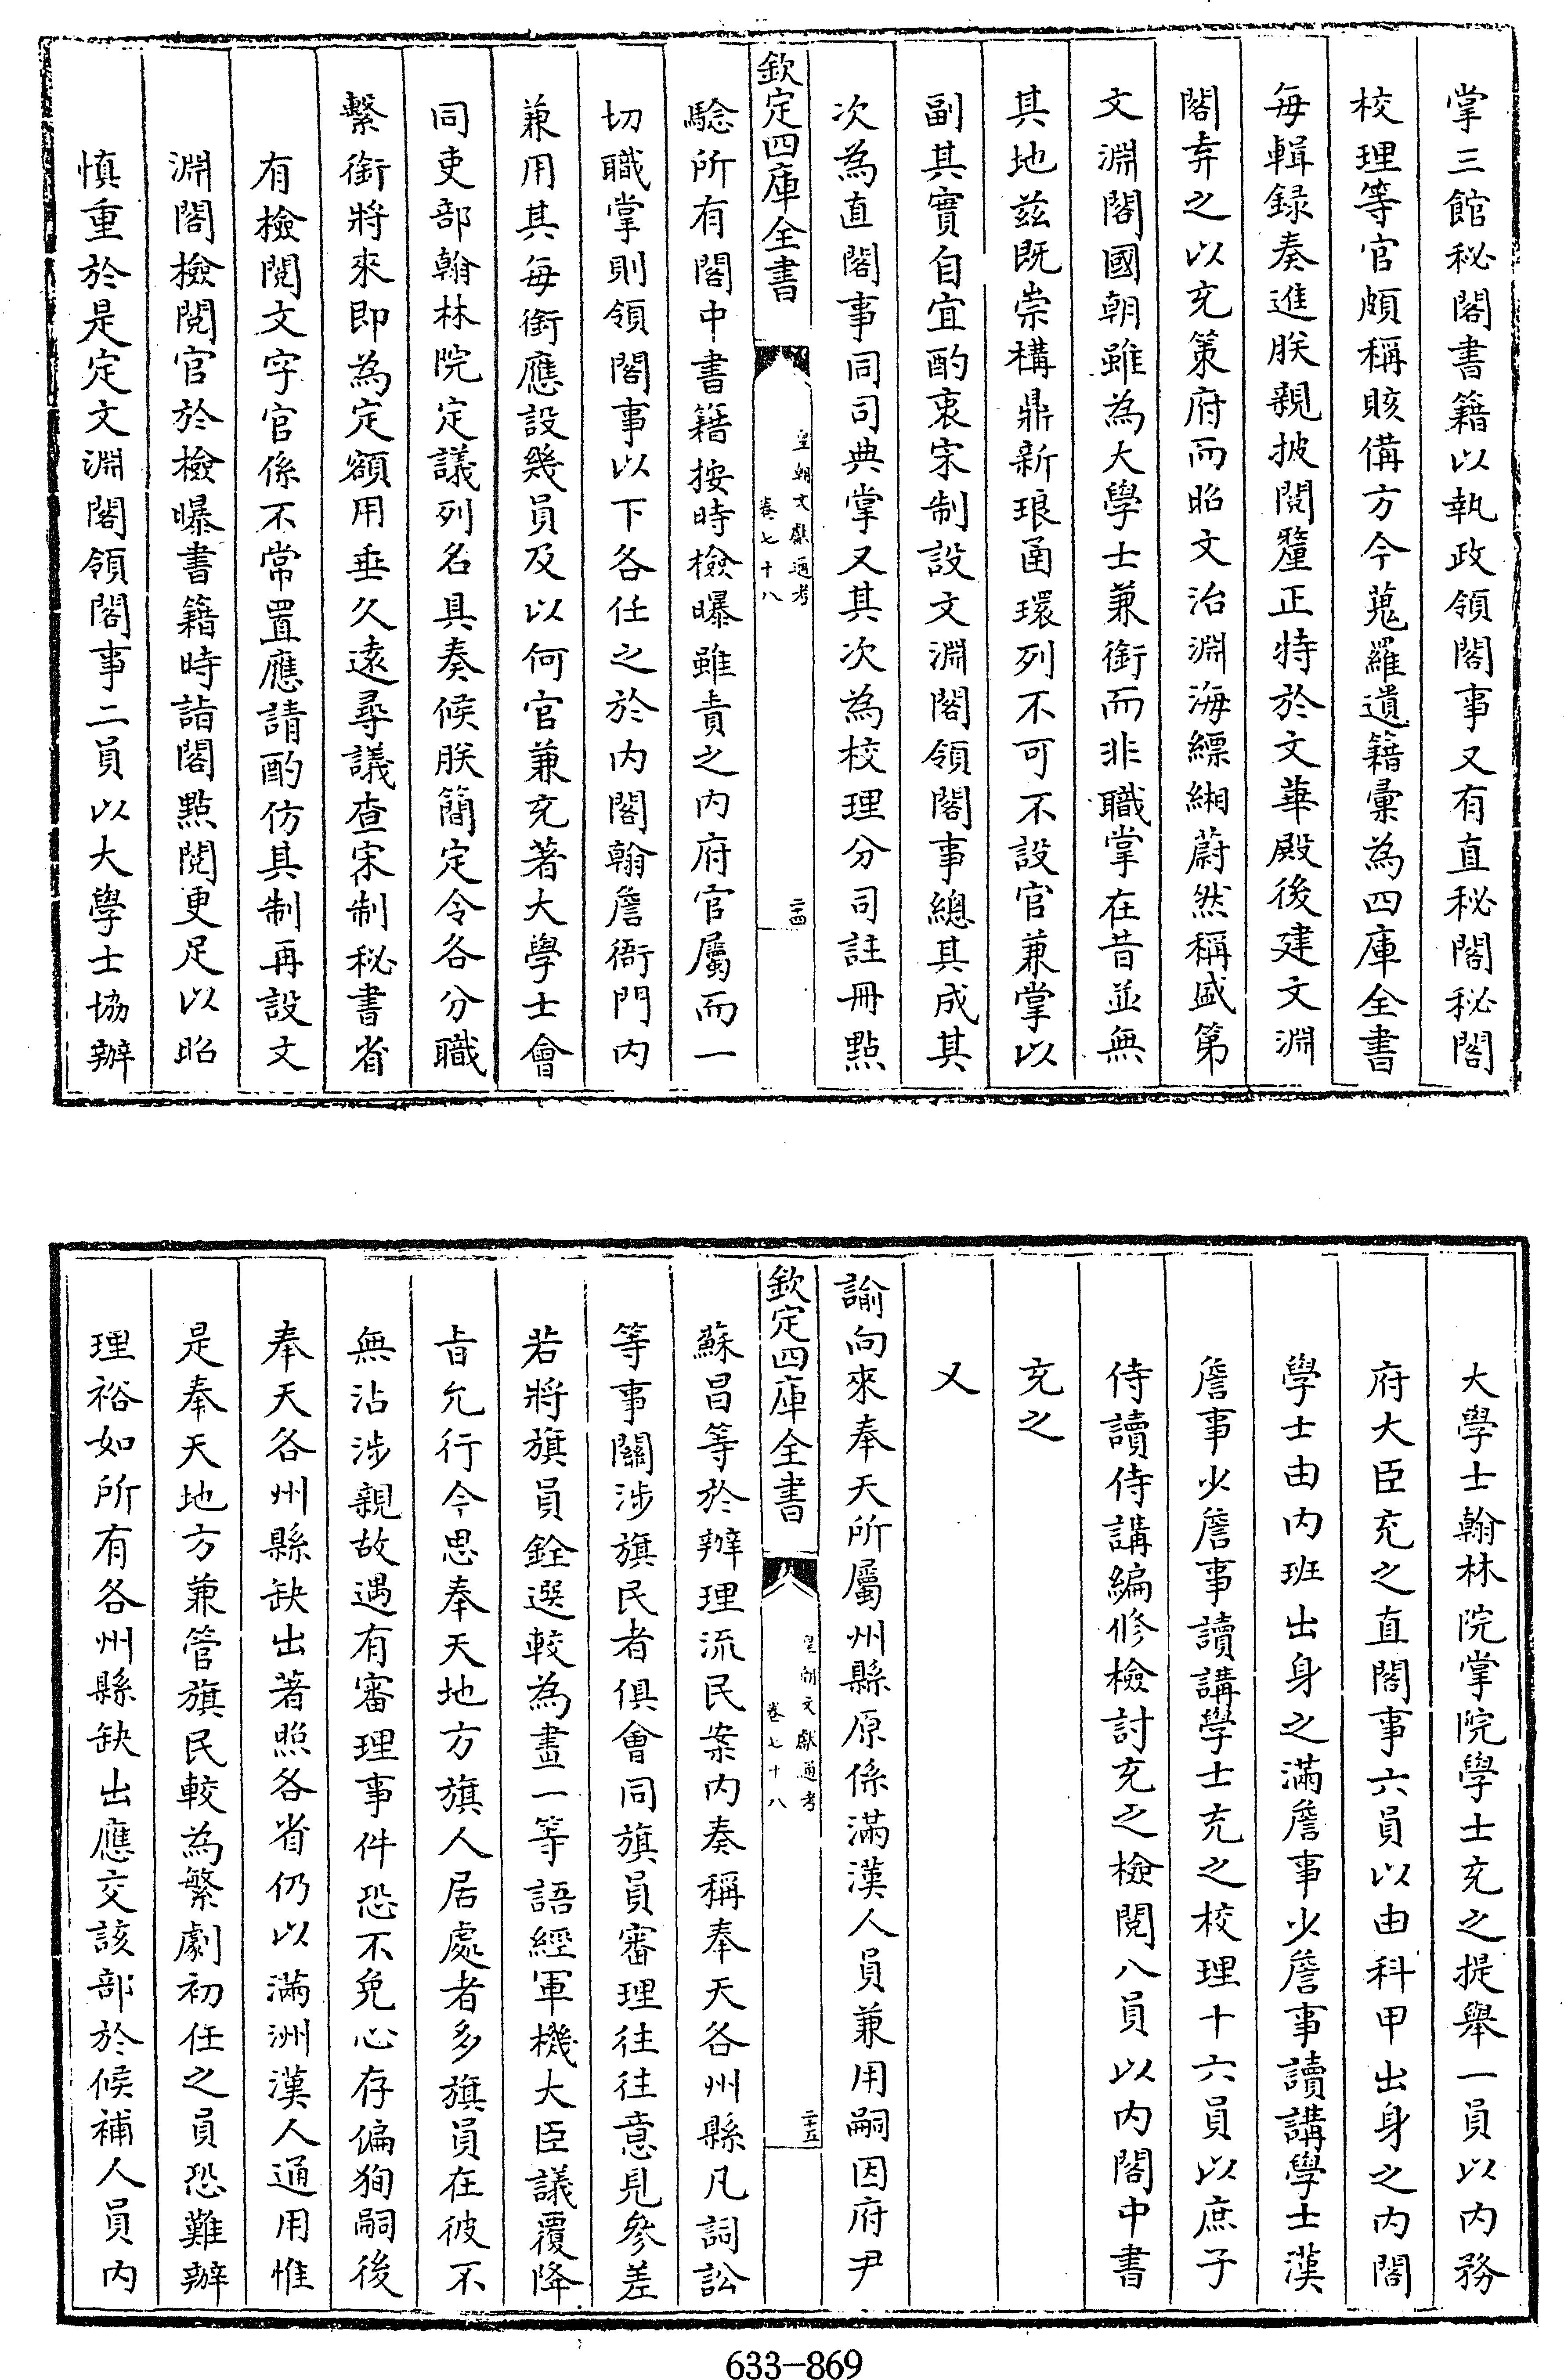 掌三館秘閣書籍以執政領閣事又有直秘閣秘閣
校理等官頗稱賅備方今蒐羅遺籍彙為四庫全書
每輯録奏進朕親披閱釐正特於文華殿後建文淵
閣弆之以充策府而昭文治淵海縹緗蔚然稱盛第
文淵閣國朝雖為大學士兼銜而非職掌在昔並無
其地兹既崇構鼎新琅函環列不可不設官兼掌以
副其實自宜酌衷宋制設文淵閣領閣事總其成其
次為直閣事同司典掌又其次為校理分司註冊點
欽定四庫全書
皇朝文獻通考
卷七十八
二十四
騐所有閣中書籍按時檢曝雖責之内府官屬而一
切職掌則領閣事以下各任之於内閣翰詹衙門内
兼用其每銜應設幾員及以何官兼充著大學士會
同吏部翰林院定議列名具奏候朕簡定令各分職
繫銜將來即為定額用垂久遠尋議查宋制秘書省
有檢閱文字官係不常置應請酌仿其制再設文
淵閣檢閱官於檢曝書籍時詣閣點閱更足以昭
慎重於是定文淵閣領閣事二員以大學士協辦
大學士翰林院掌院學士充之提舉一員以内務
府大臣充之直閣事六員以由科甲出身之内閣
學士由内班出身之滿詹事少詹事讀講學士漢
詹事少詹事讀講學士充之校理十六員以庶子
侍讀侍講編修檢討充之檢閱八員以内閣中書
充之
又
諭向來奉天所屬州縣原係滿漢人員兼用嗣因府尹
欽定四庫全書
皇朝文獻通考
卷七十八
二十五
蘇昌等於辦理流民案内奏稱奉天各州縣凡詞訟
等事關涉旗民者俱會同旗員審理往往意見參差
若將旗員銓選較為畫一等語經軍機大臣議覆降
旨允行今思奉天地方旗人居處者多旗員在彼不
無沾涉親故遇有審理事件恐不免心存偏狥嗣後
奉天各州縣缺出著照各省仍以滿洲漢人通用惟
是奉天地方兼管旗民較為繁劇初任之員恐難辦
理裕如所有各州縣缺出應交該部於候補人員内
633-869